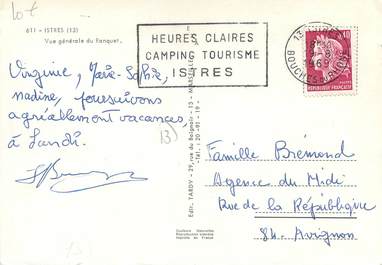 611 - ISTRES (13)
Vue générale du Ranquet.
HEURES CLAIRES
CAMPING TOURISME
ISTRES
13
1969
BOUCHES-DU-RHONE
0,40
REPUBLIQUE FRANÇAISE
Virginie, Marie-Sophie,
Nadine, poursuivons
agréablement vacances
à
13)
Edit. TARDY - 29, rue du Baignoir - 13 - MARSEILLE
Tél. : 20-91-19
Couleurs Naturelles
Reproduction interdite
Imprimé en France
Famille Brémond
Agence du Midi
Rue de la République
84. Avignon